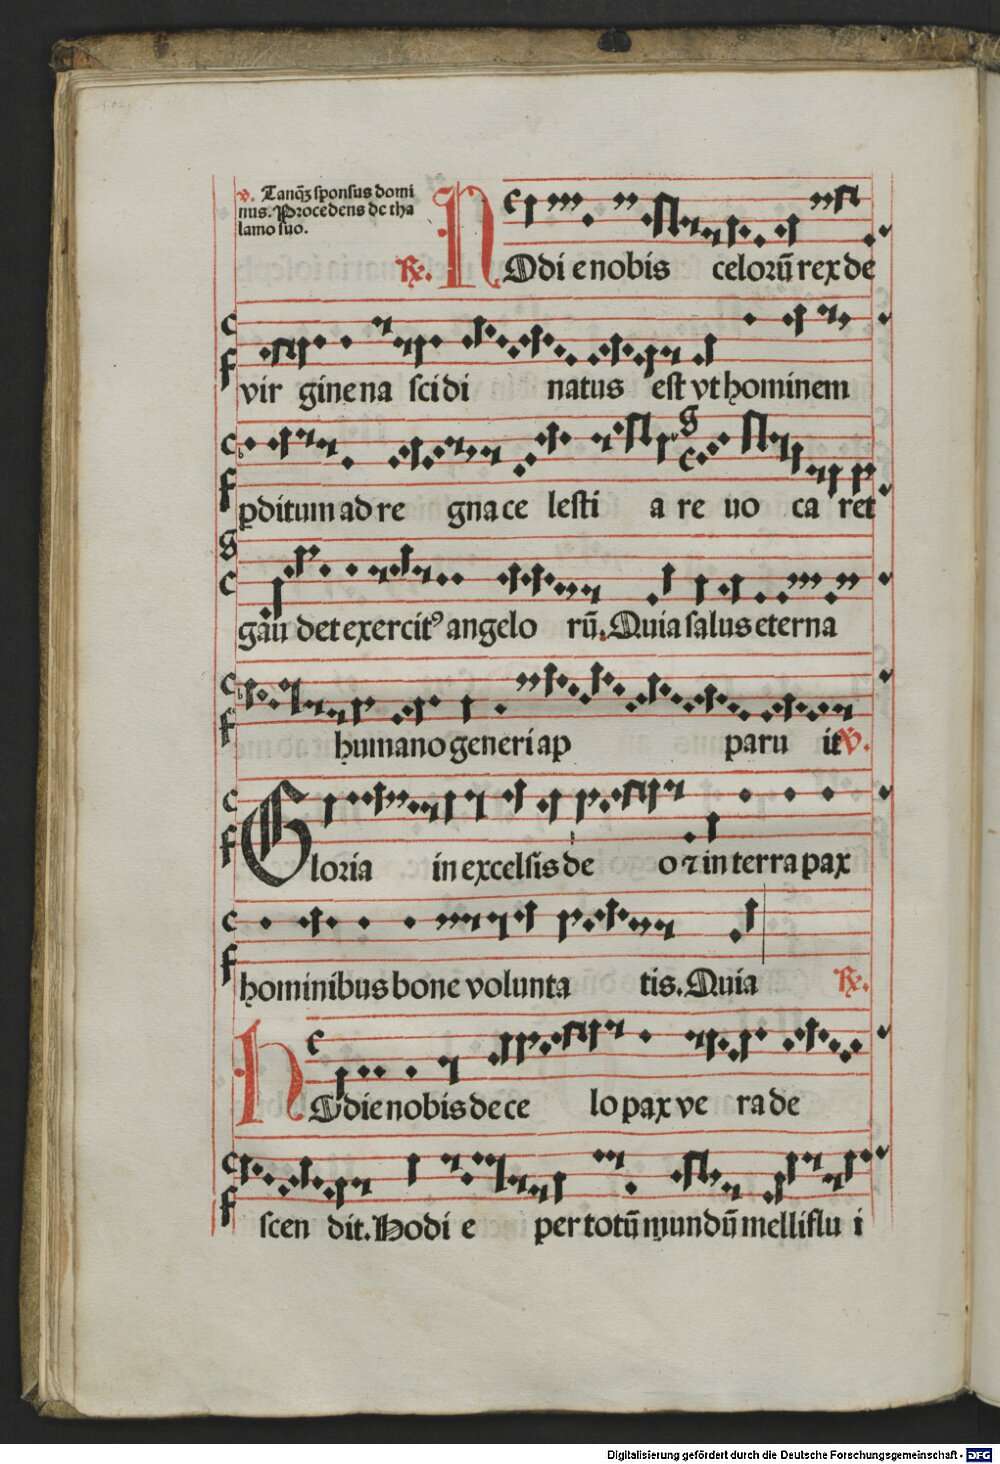 ℣. Tanq̃ȝ sponsus domi
nus. Procedens de tha
lamo suo.
℟. HOdi e nobis celorū rex de
vir gine na sci di natus est vt hominem
ꝑditum ad re gna ce lesti a re uo ca ret
gau det exercitꝰ angelo rū. Quia salus eterna
humano generi ap paru it ℣.
Gloria in excelsis de o ⁊ in terra pax
hominibus bone volunta tis. Quia ℟.
HOdie nobis de ce lo pax ve ra de
scen dit. Hodi e per totū mundū melliflu i
Digitalisierung gefördert durch die Deutsche Forschungsgemeinschaft - DFG